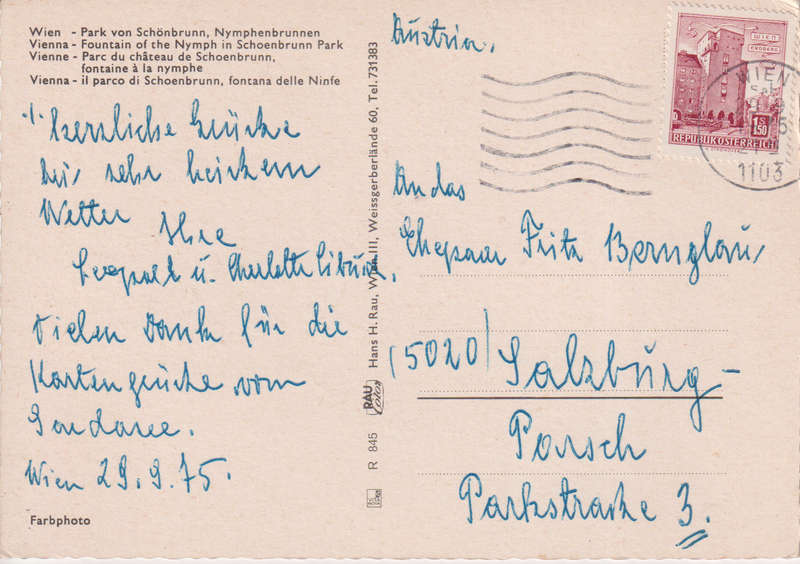 Wien - Park von Schönbrunn, Nymphenbrunnen
Vienna - Fountain of the Nymph in Schoenbrunn Park
Vienne - Parc du château de Schoenbrunn,
fontaine à la nymphe
Vienna - il parco di Schoenbrunn, fontana delle Ninfe
herzliche Grüße
bei sehr heißem
Wetter Ihre
Leopold u. Charlotte
Vielen Dank für die
Kartengrüße vom
Gardasee.
Wien 29.9.75.
Farbphoto
R 845 RAU Hans H. Rau, Wien III, Weissgerberlände 60, Tel. 731383
Austria.
WIEN
ERDBERG
1.50
S
REPUBLIK ÖSTERREICH
WIEN
1103
An das
Ehepaar Fritz
(5020) Salzburg-
Parsch
Parkstraße 3.